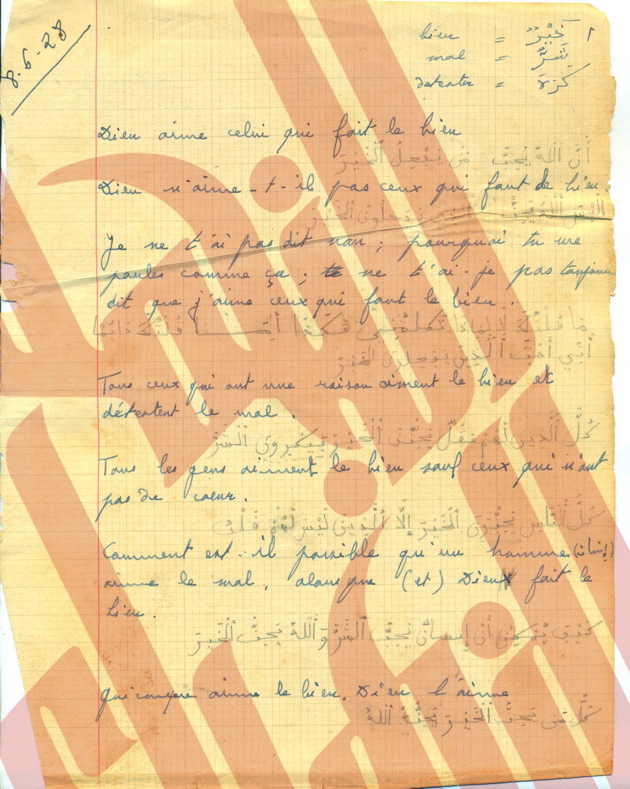 8-6-28
bien = خَيْرٌ ١
mal = شَرٌّ
détester = كَرِهَ
Dieu aime celui qui fait le bien
أَنَّ اللّٰهَ يُحِبُّ مَنْ يَفْعَلُ الْخَيْرَ
Dieu n'aime-t-il pas ceux qui font de bien.
أَلَيْسَ اللّٰهُ يُحِبُّ الْخَيْرَ
Je ne t'ai pas dit non; pourquoi tu me
parles comme ça; ne t'ai-je pas toujours
dit que j'aime ceux qui font le bien.
مَا قُلْتُ لَكَ لَا لِمَاذَا تُكَلِّمُنِي هٰكَذَا قُلْتُ لَكَ دَائِمًا
أَنِّي أُحِبُّ الَّذِينَ يَفْعَلُونَ الْخَيْرَ
Tous ceux qui ont une raison aiment le bien et
détestent le mal.
كُلُّ الَّذِينَ لَهُمْ عَقْلٌ يُحِبُّونَ الْخَيْرَ وَيَكْرَهُونَ الشَّرَّ
Tous les gens aiment le bien sauf ceux qui n'ont
pas de coeur.
كُلُّ النَّاسِ يُحِبُّونَ الْخَيْرَ إِلَّا الَّذِينَ لَيْسَ لَهُمْ قَلْبٌ
Comment est-il possible qu'un homme (إنسان)
aime le mal, alorsque (et) Dieu fait le
bien.
كَيْفَ يُمْكِنُ أَنْ إِنْسَانٌ يُحِبُّ الشَّرَّ وَاللّٰهُ يُحِبُّ الْخَيْرَ
Quiconque aime le bien, Dieu l'aime
كُلُّ مَنْ يُحِبُّ الْخَيْرَ يُحِبُّهُ اللّٰهُ